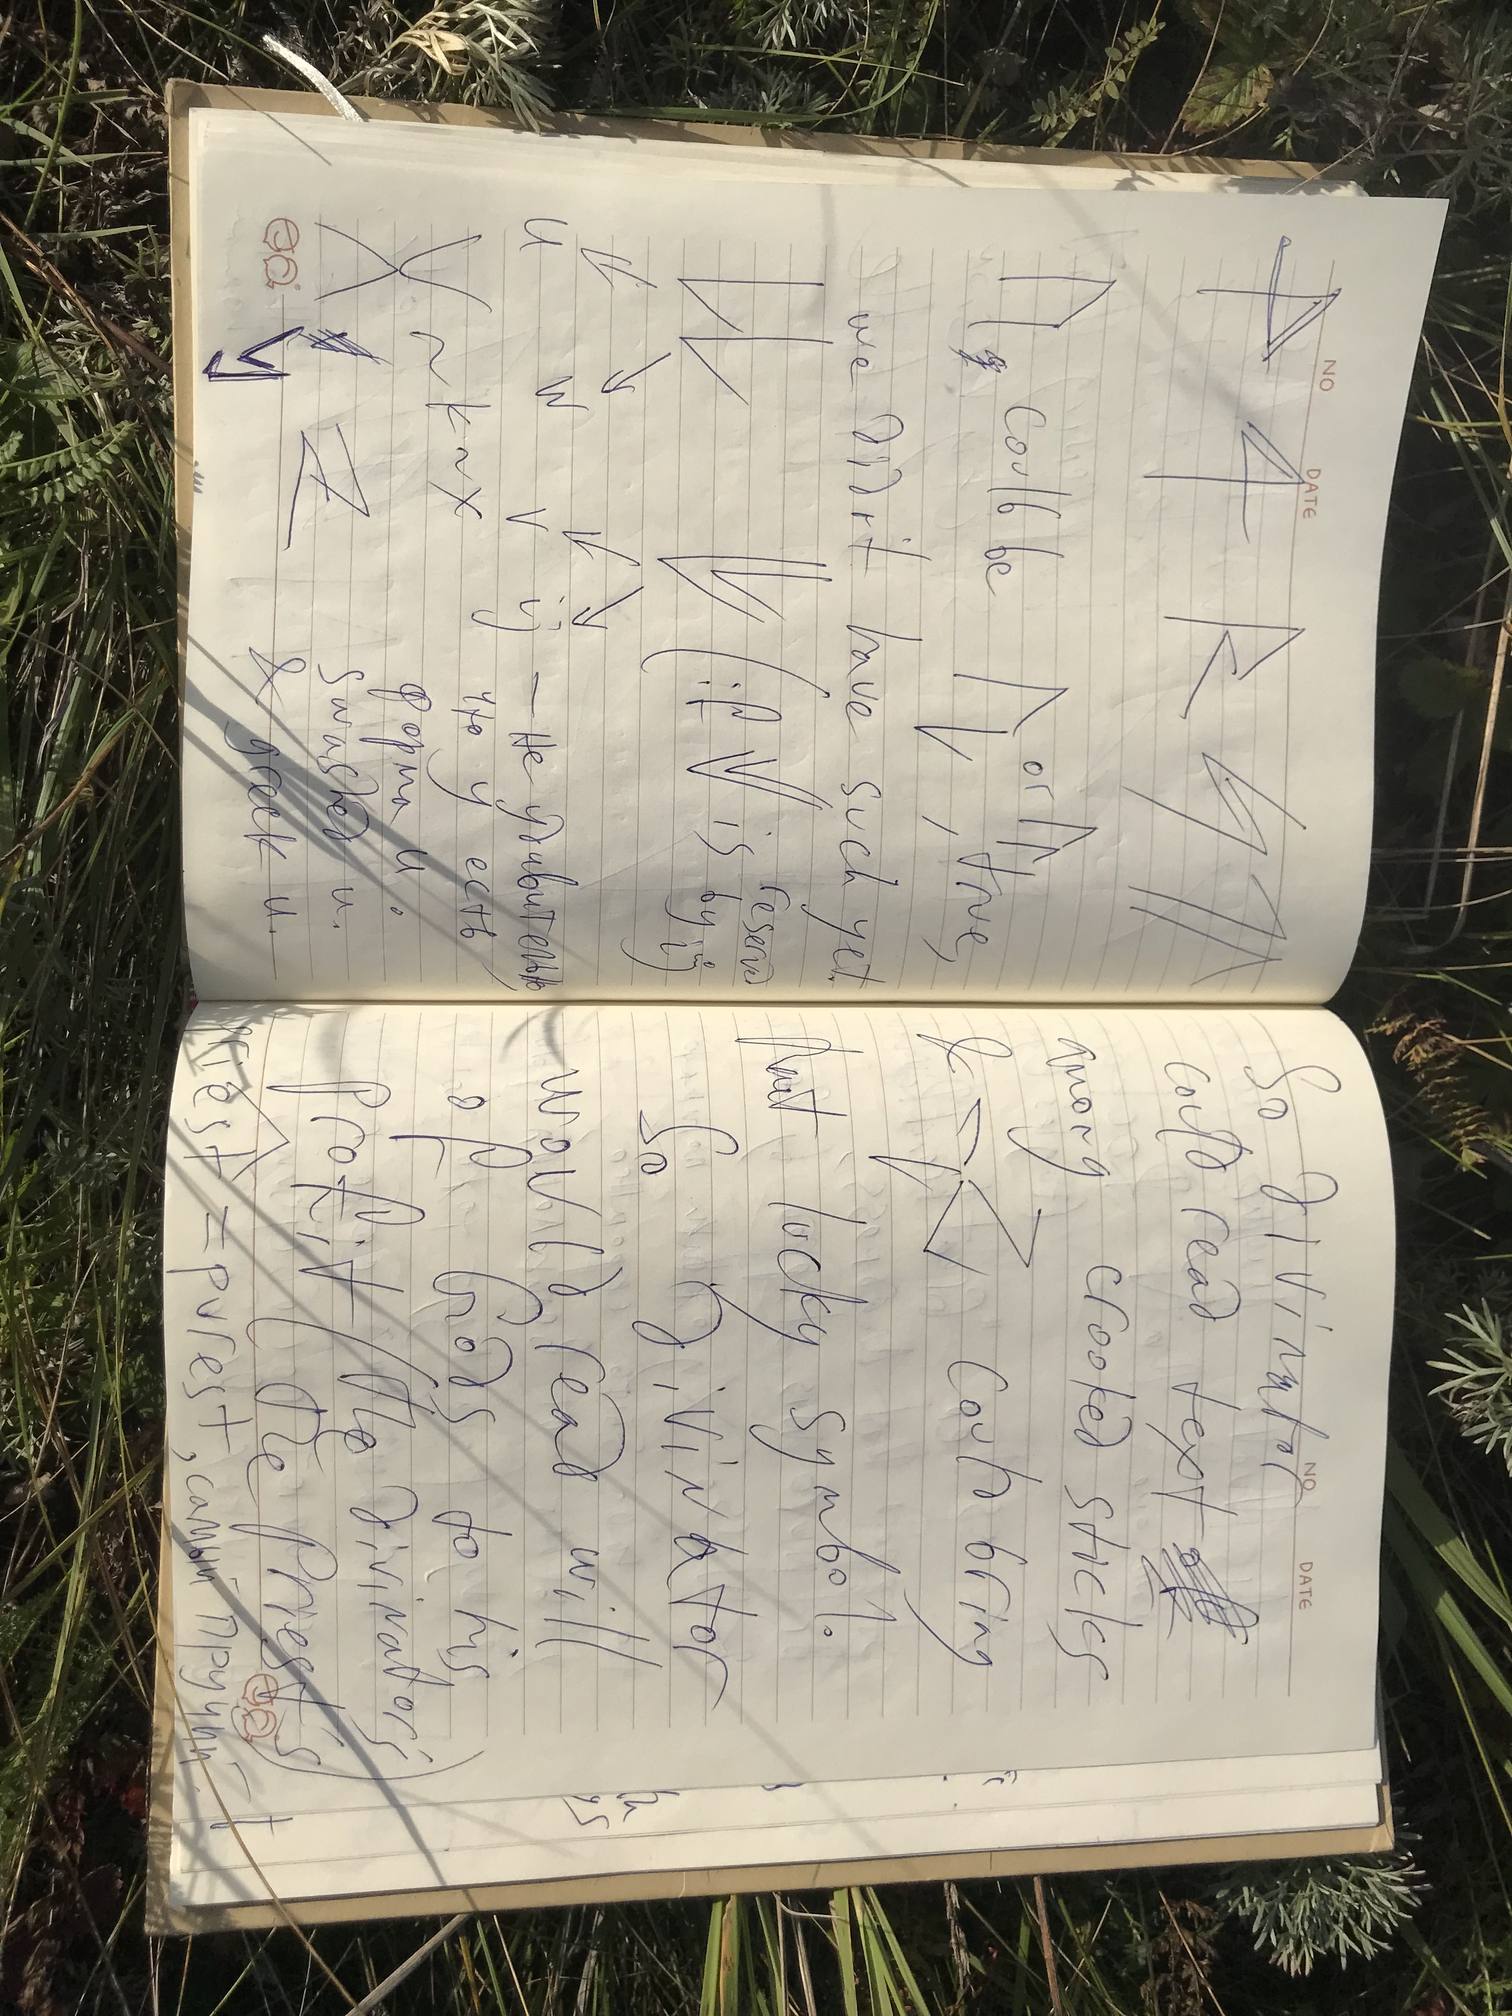 NO DATE
could be or , true,
we didn't have such yet.
(if V is reserved by ij)
u w v ij – не удивительно,
~ k ~ x что у есть
форма и.
X Z Swashed u.
& greek u.
NO DATE
So divinator
could read text
among crooked sticles
& could bring
that lucky symbol.
So divinator
would read will
of Gods to his
profit (the divinators'
(the Priest's)
prest = purest, самый